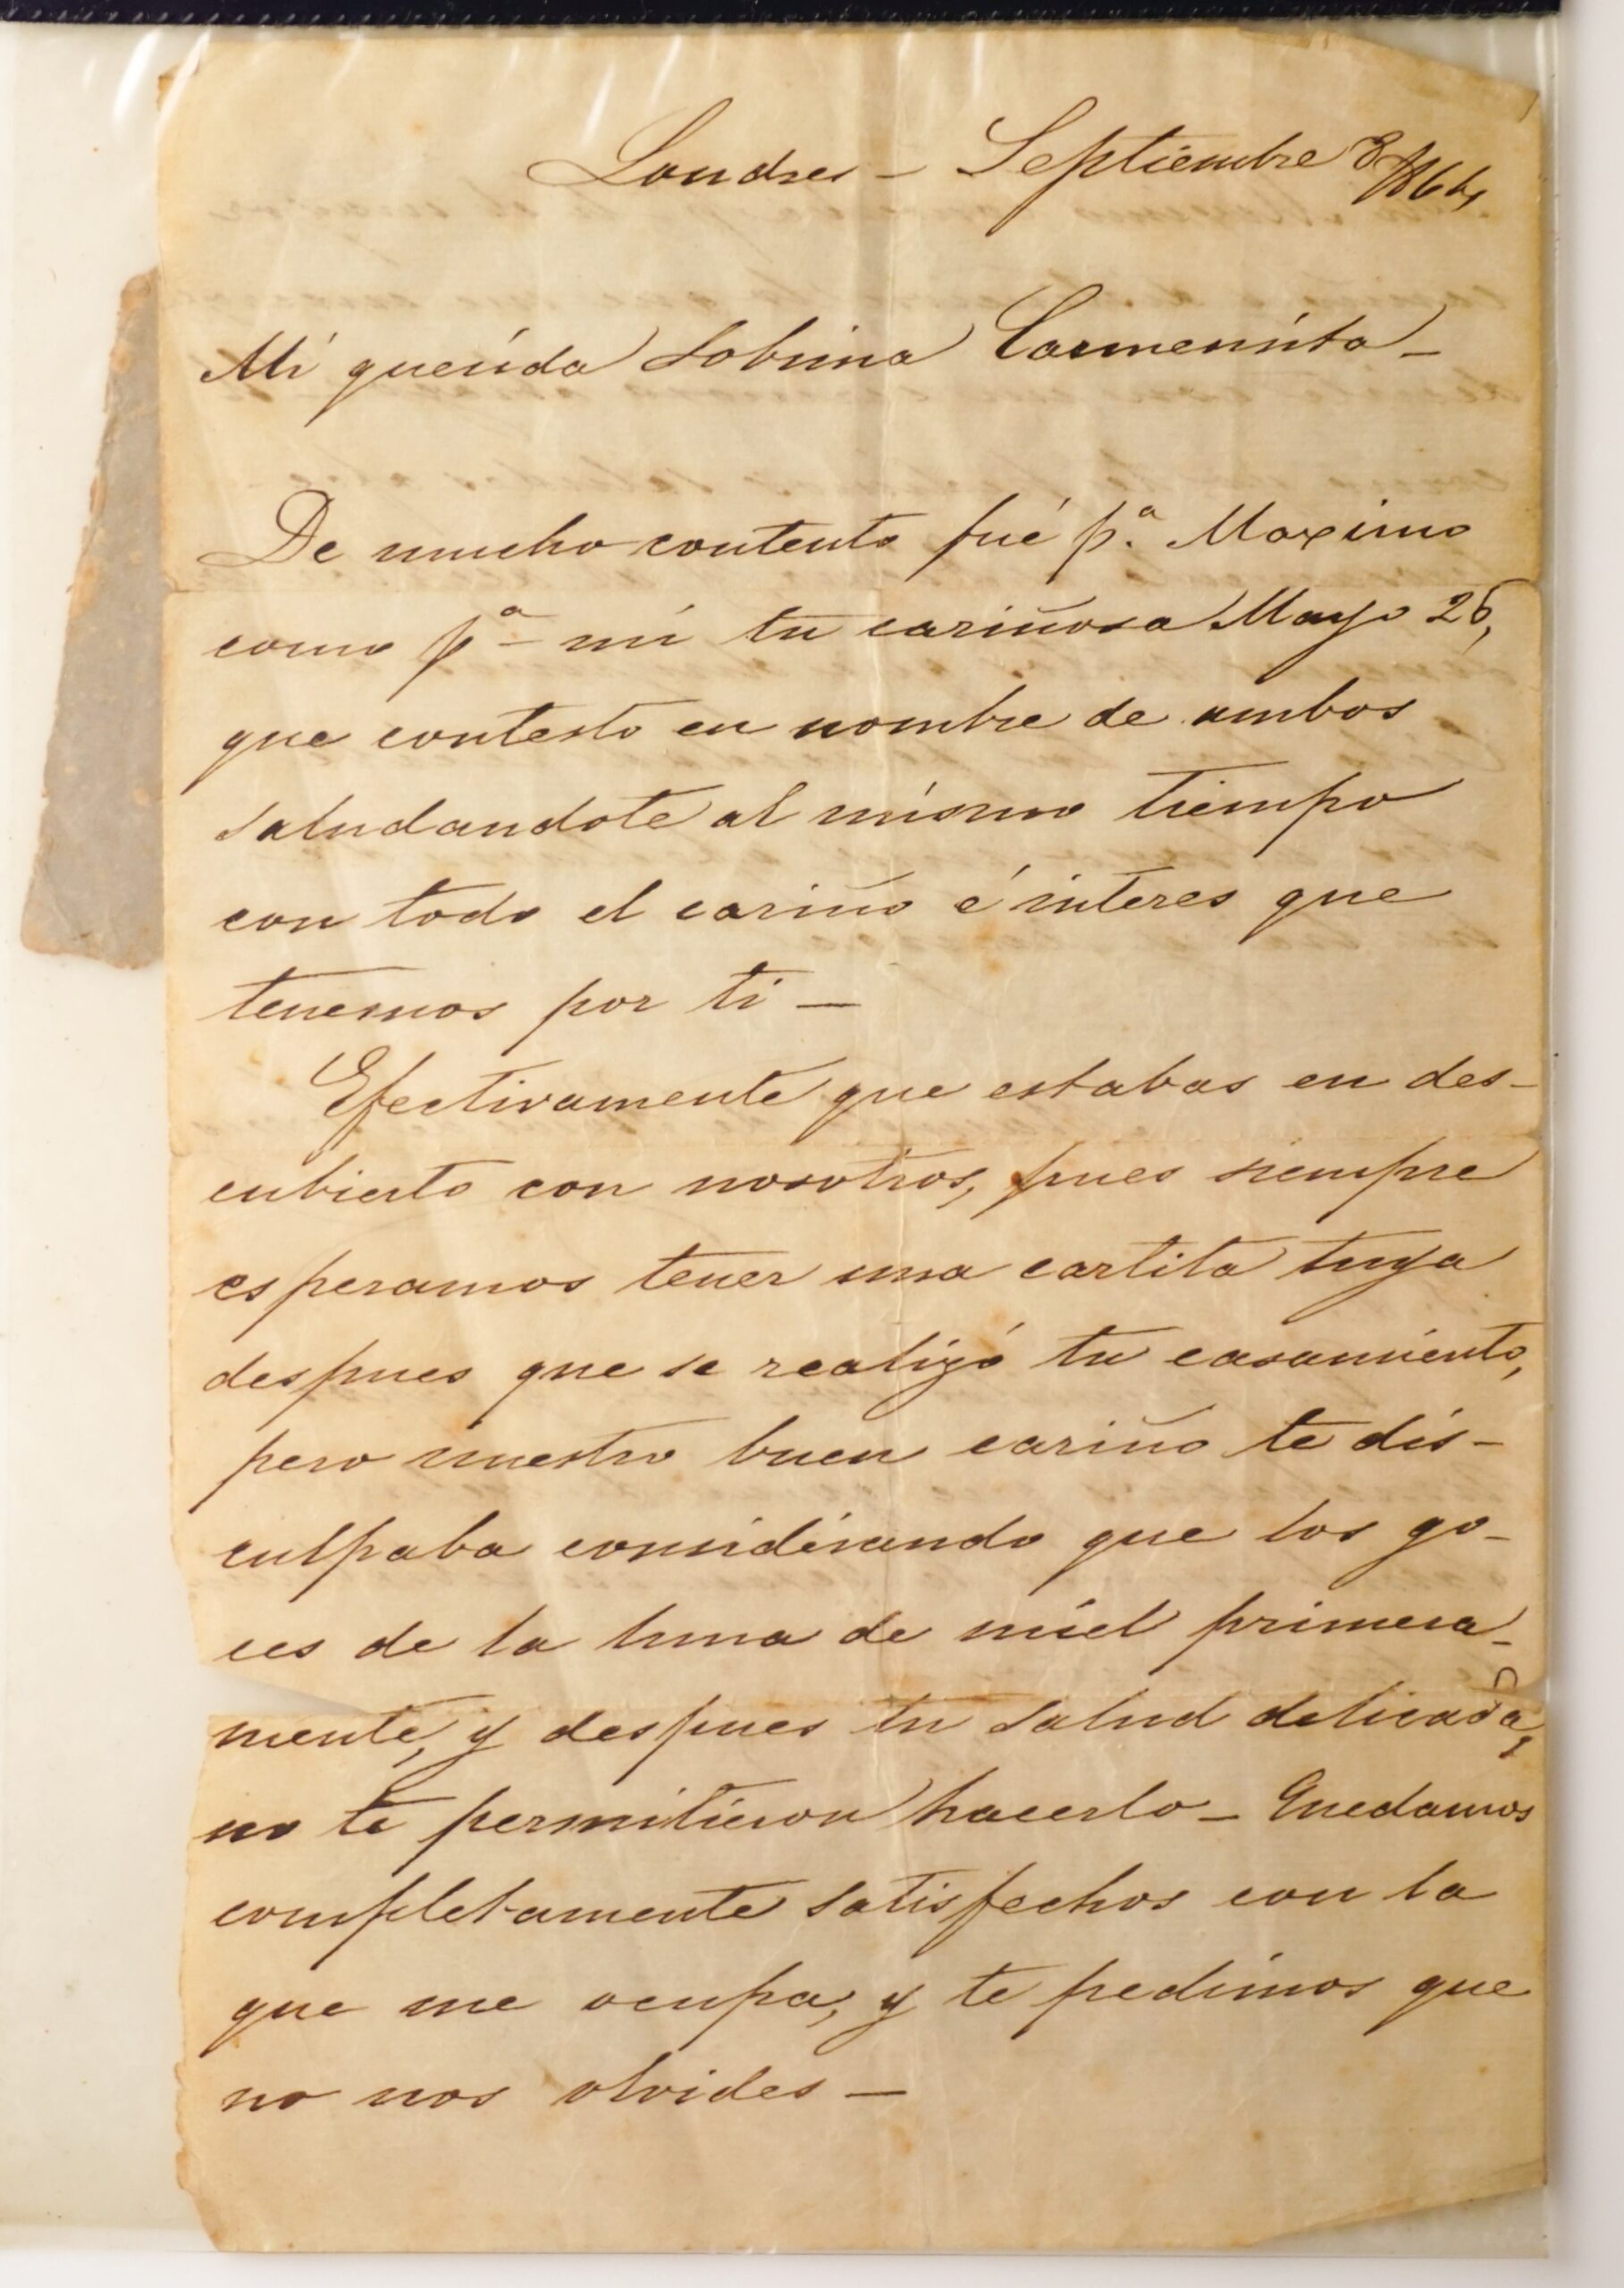 Londres – Septiembre 8/
Mi querida Sobrina Carmencita –
De mucho contento fué pª. Maximo
como pª – mi tu cariñosa Mayo 26,
que contesto en nombre de ambos
saludandote al mismo tiempo
con todo el cariño é interes que
tenemos por ti –
Efectivamente que estabas en des-
cubierto con nosotros, pues siempre
esperamos tener una cartita tuya
despues que se realizó tu casamiento,
pero nuestro buen cariño te dis-
culpaba considerando que los go-
ces de la luna de miel primera-
mente, y despues tu salud delicada,
no te permitieron hacerlo – Quedamos
completamente satisfechos con la
que me ocupa, y te pedimos que
no nos olvides –